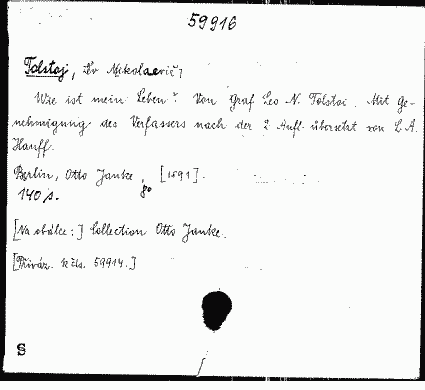 59916
Tolstoj, Lev Nikolaevič,
Wie ist mein Leben? Von Graf Leo N. Tolstoi. Mit Ge-
nehmigung des Verfassers nach der 2. Aufl. übersetzt von L. A.
Hauff.
Berlin, Otto Janke, [1891].
8°
140 s.
[Na obálce:] Collection Otto Janke.
[Přiváz. k čís. 59914.]
S